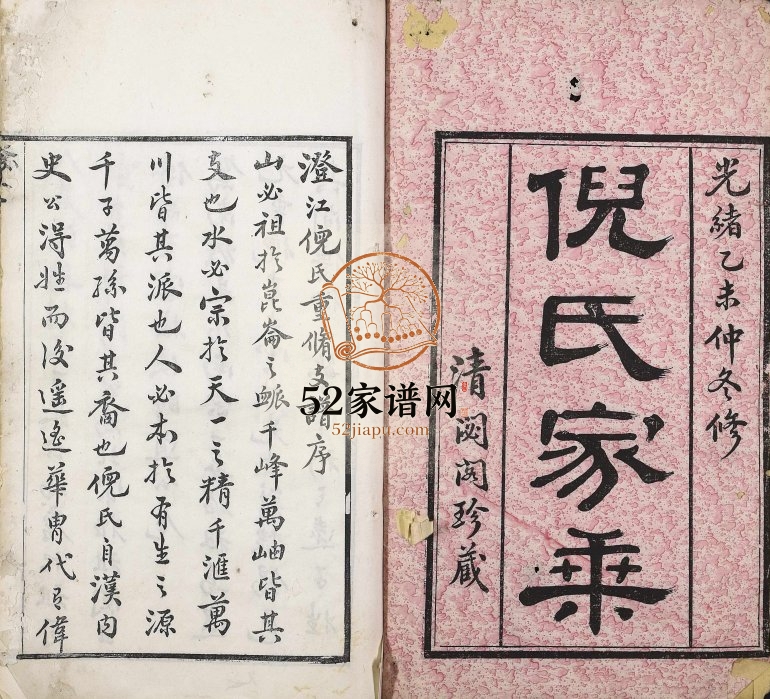 光緒乙未仲冬修
倪氏家乗
清閟阁珍藏
澄江倪氏重脩支譜序
山必祖於崑崙之脈千峰萬岫皆其
支也水必宗於天一之精千滙萬
川皆其派也人必本於有生之源
千子萬孫皆其裔也倪氏自漢内
史公淂姓而後遥遥華胄代有偉
52家谱网
52jiapu.com